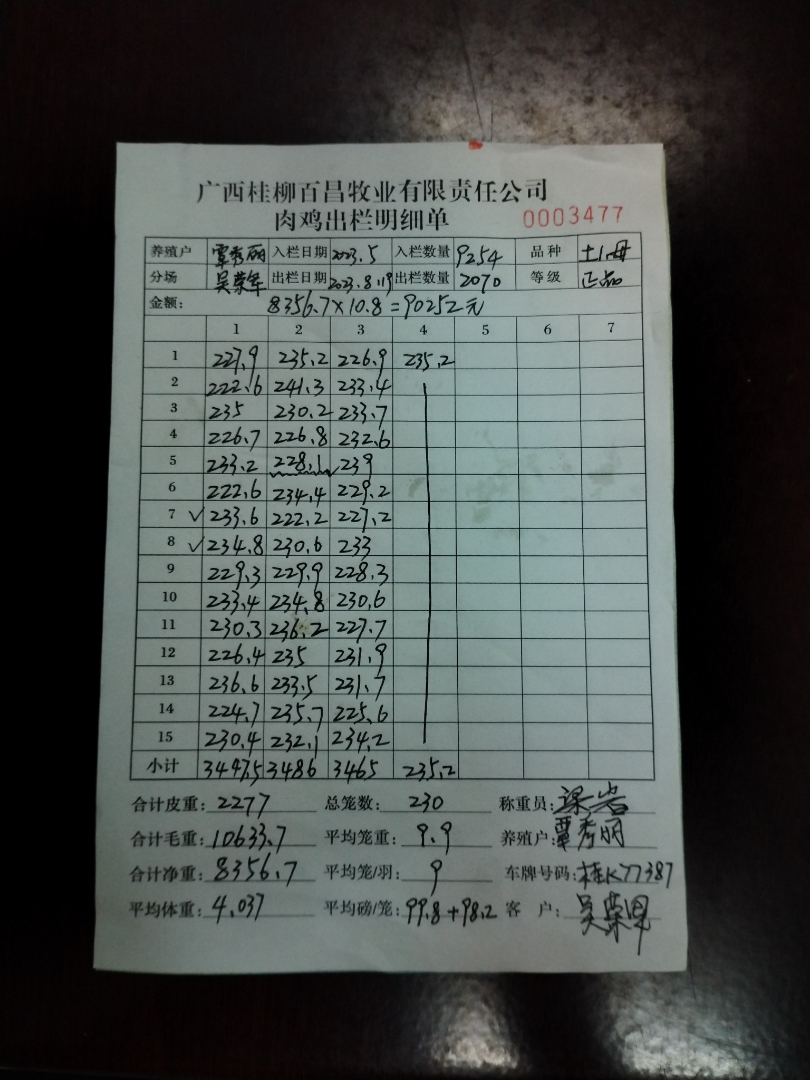 广西桂柳百昌牧业有限责任公司
肉鸡出栏明细单 0003477
养殖户 覃秀丽 入栏日期 2023.5 入栏数量 9254 品种 土1母
分场 吴荣军 出栏日期 2023.8.19 出栏数量 2070 等级 正品
金额: 8356.7×10.8=90252元
1 2 3 4 5 6 7
1 227.9 235.2 226.9 235.2
2 222.6 241.3 233.4
3 235 230.2 233.7
4 226.7 226.8 232.6
5 233.2 228.1 239
6 222.6 234.4 229.2
7 ✓ 233.6 222.2 227.2
8 ✓ 234.8 230.6 233
9 229.3 229.9 228.3
10 233.4 234.8 230.6
11 230.3 236.2 227.7
12 226.4 235 231.9
13 236.6 233.5 231.7
14 224.7 235.7 225.6
15 230.4 232.1 234.2
小计 3447.5 3486 3465 235.2
合计皮重: 2277 总笼数: 230 称重员: 梁岩
合计毛重: 10633.7 平均笼重: 9.9 养殖户: 覃秀丽
合计净重: 8356.7 平均笼/羽: 9 车牌号码: 桂K77387
平均体重: 4.037 平均磅/笼: 99.8+98.2 客户: 吴荣